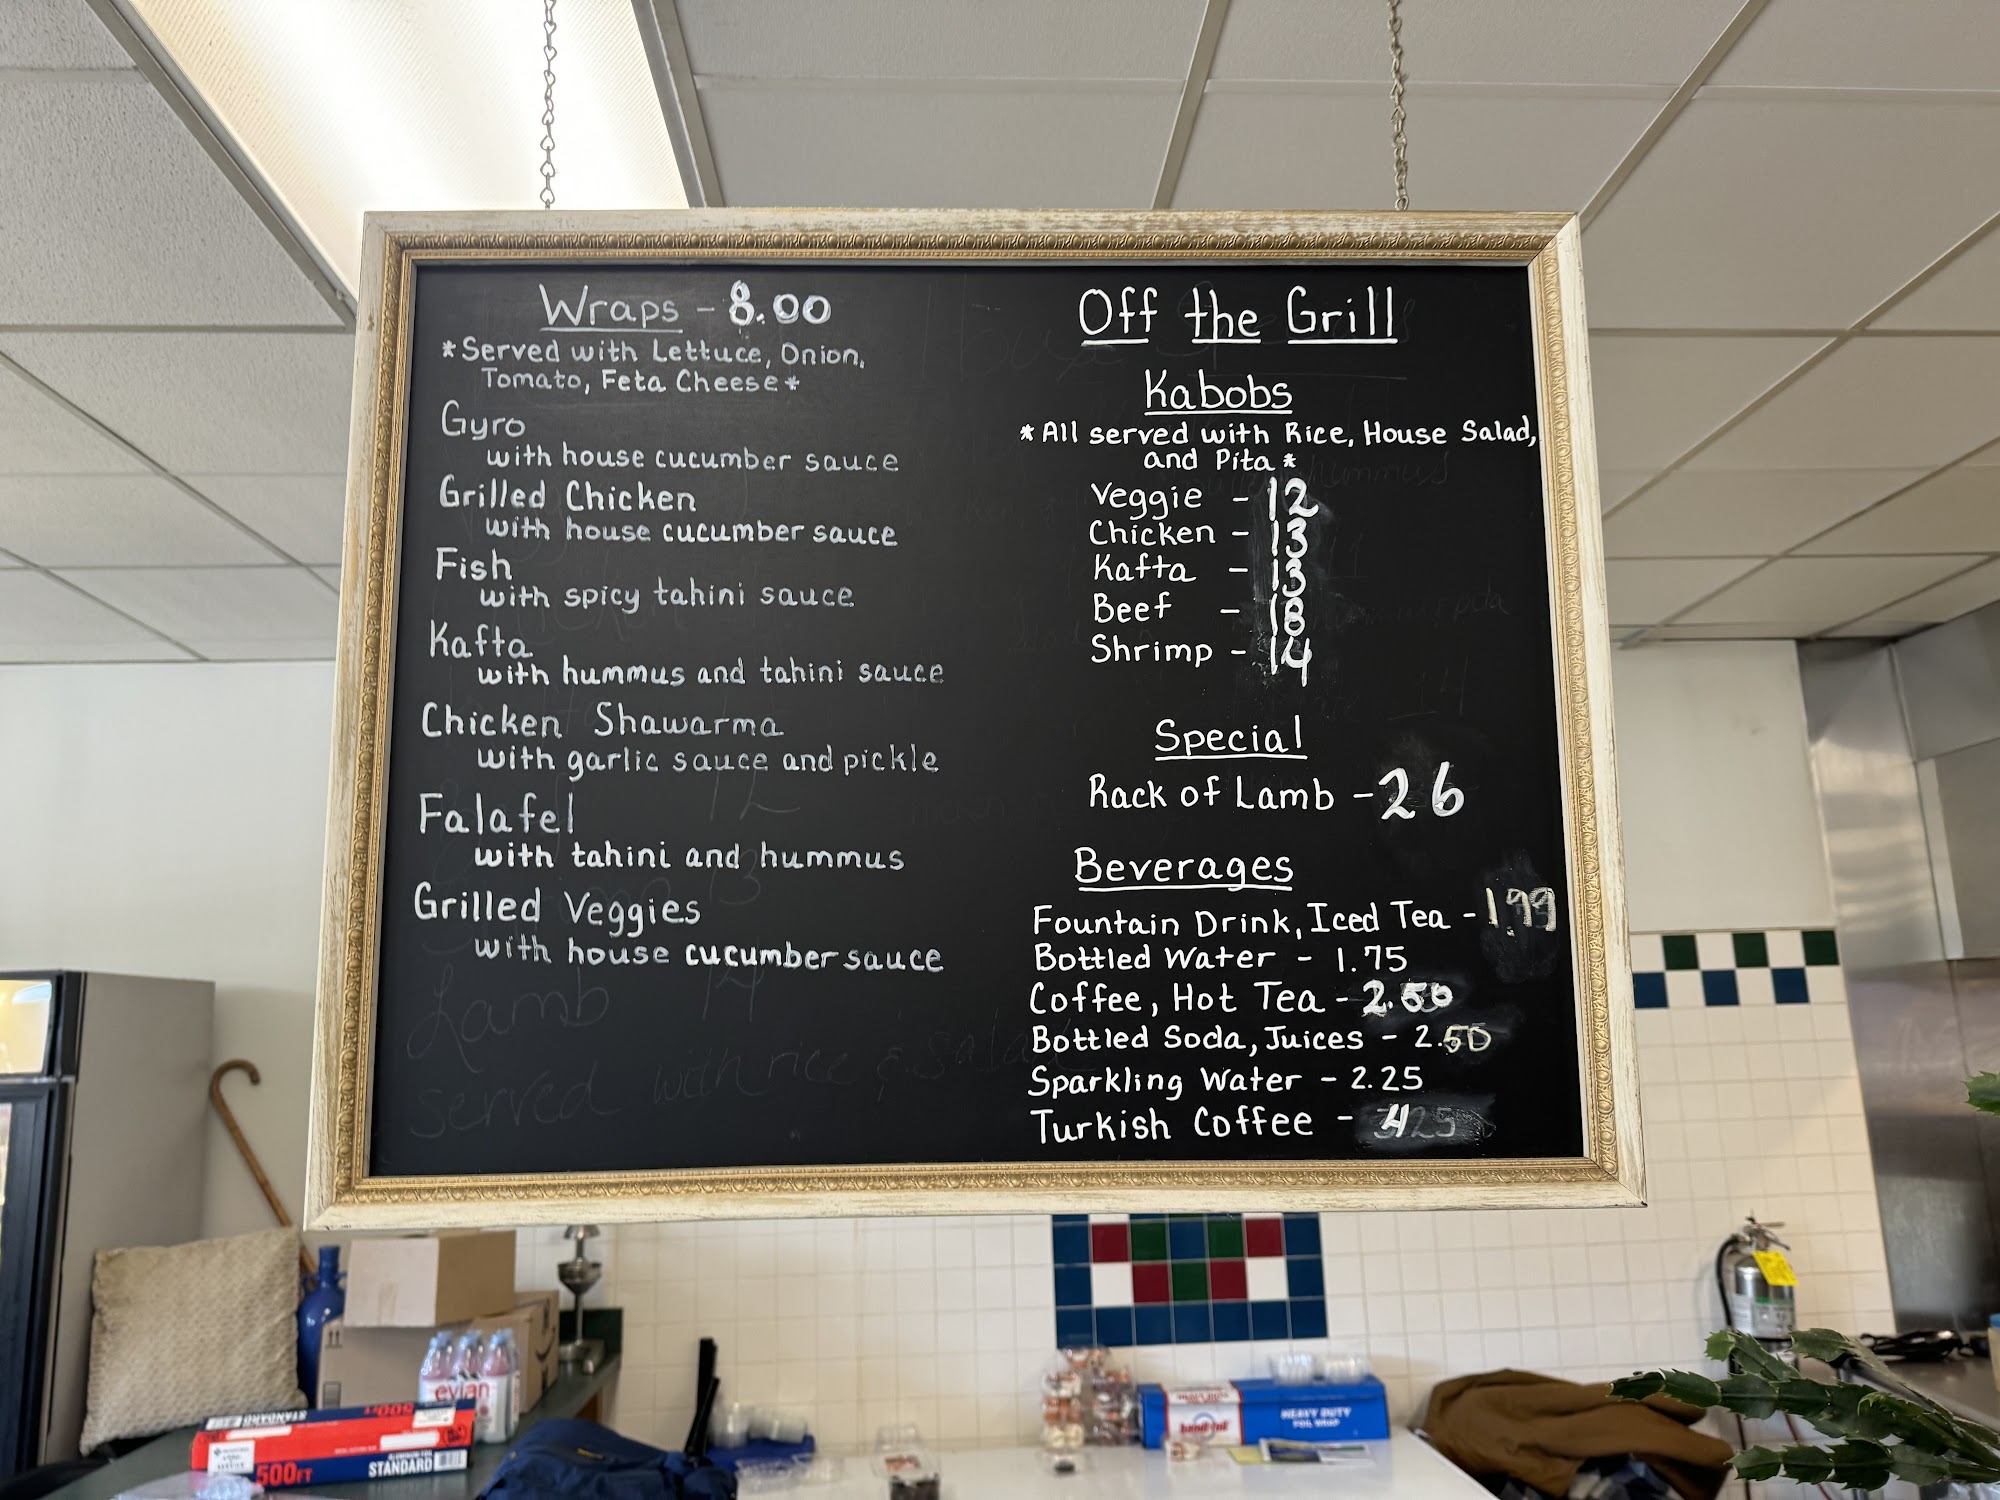 Wraps - 8.00
*Served with Lettuce, Onion,
Tomato, Feta Cheese*
Gyro
with house cucumber sauce
Grilled Chicken
with house cucumber sauce
Fish
with spicy tahini sauce
Kafta
with hummus and tahini sauce
Chicken Shawarma
with garlic sauce and pickle
Falafel
with tahini and hummus
Grilled Veggies
with house cucumber sauce
Lamb 14
served with rice & salad
Off the Grill
Kabobs
*All served with Rice, House Salad,
and Pita*
Veggie - 12
Chicken - 13
Kafta - 13
Beef - 18
Shrimp - 14
Special
Rack of Lamb - 26
Beverages
Fountain Drink, Iced Tea - 1.99
Bottled Water - 1.75
Coffee, Hot Tea - 2.50
Bottled Soda, Juices - 2.50
Sparkling Water - 2.25
Turkish Coffee - 4
evian
500FT
STANDARD
HEAVY DUTY
FOIL WRAP